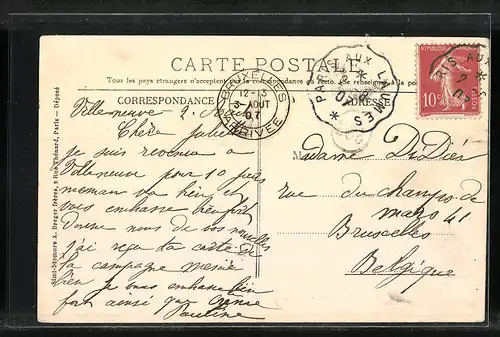 CARTE POSTALE
Tous les pays étrangers n'acceptent pas la correspondance au recto. (Se renseigner à la poste)
CORRESPONDANCE
ADRESSE
BRUXELLES
12-3
3-AOUT
07
ARRIVÉE
PARIS AUX LAUMES
REPUBLIQUE FRANÇAISE
10
Mimi-Bromure A. Breger frères, 9 Rue Thénard, Paris — Déposé
Villeneuve 2
Chère
je suis revenue a
Villeneuve pour 10 jours
maman va bien et
vous embrasse
Donne nous de vos nouvelles
j'ai reçu ta carte de
la campagne
bien je vous embrasse bien
fort ainsi que
Pauline
Madame DiDier
rue du champs de
mars 41
Bruxelles
Belgique